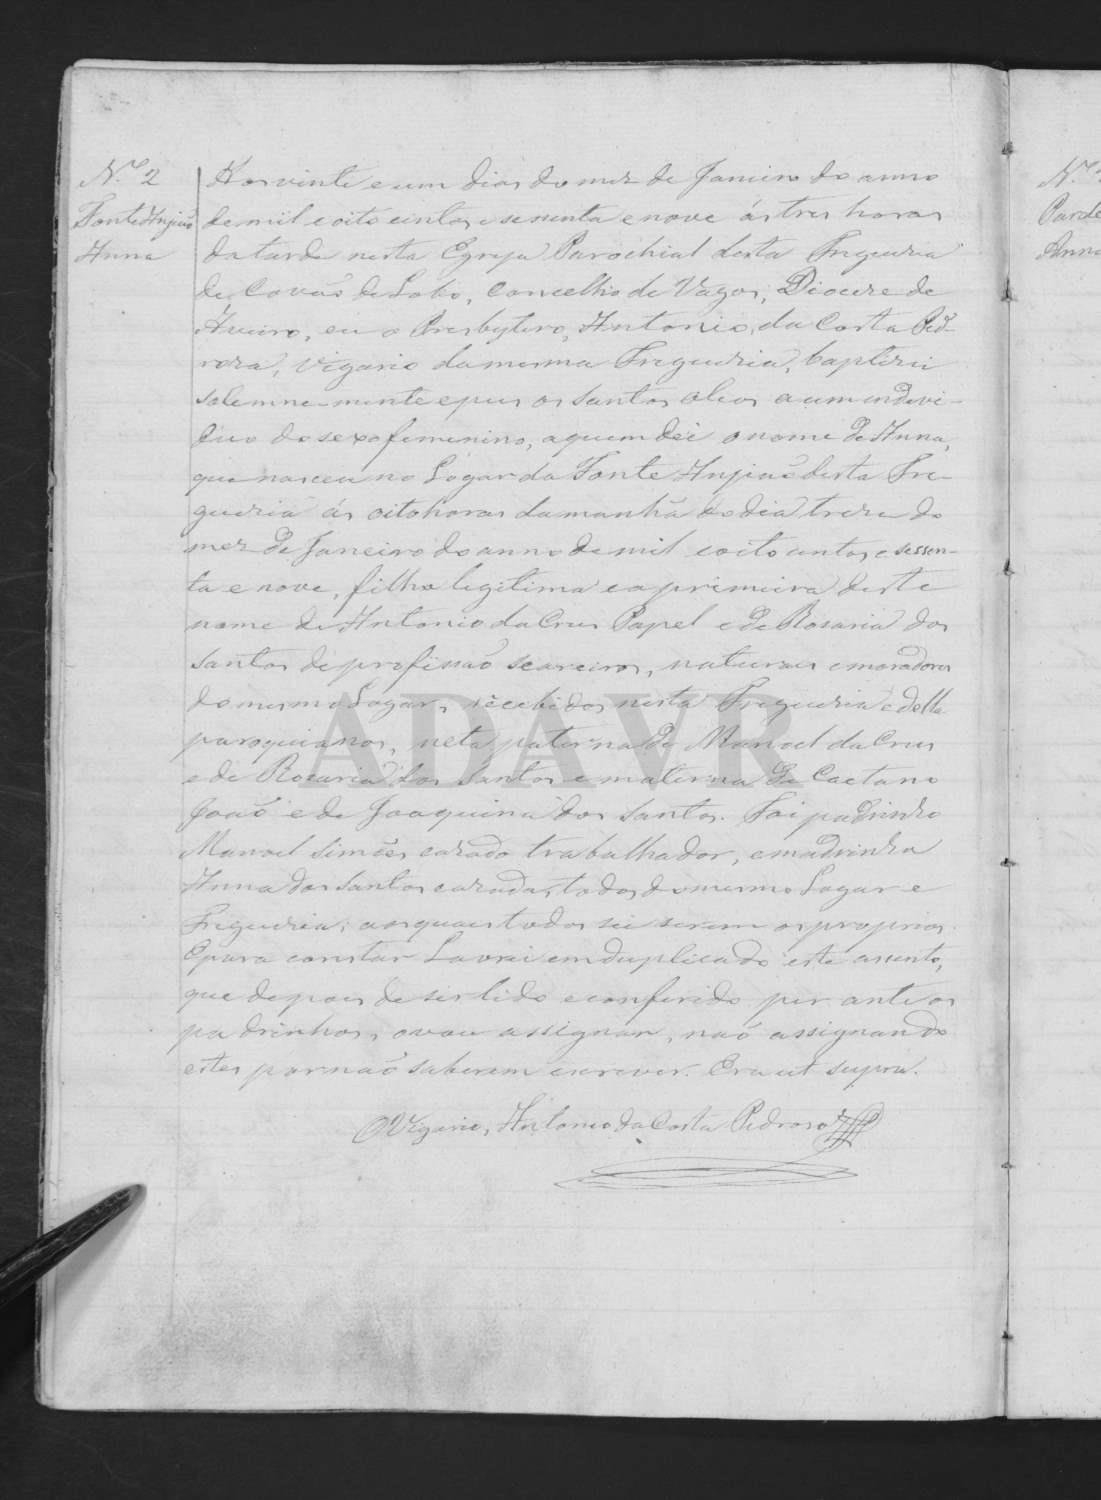 N.º 2
Fonte Anjiaõ
Anna
Aos vinte e um dias do mez de Janeiro do anno
de mil e oito centos e sessenta e nove ás tres horas
da tarde nesta Egreja Parochial desta Freguezia
de Covaõ de Lobo, Concelho de Vagos, Diocese de
Aveiro, eu o Presbytero, Antonio, da Costa Ped-
roza, Vigario da mesma Freguezia, baptizei
solemne-mente e pus os santos oleos a um indevi-
duo do sexo femenino, a quem dei o nome de Anna,
que nasceu no Logar da Fonte Anjiaõ desta Fre-
guezia ás oito horas da manhã do dia treze do
mez de Janeiro do anno de mil e oito centos e sessen-
ta e nove, filha legitima e a primeira deste
nome de Antonio da Crus Papel e de Rosaria dos
Santos de profissaõ seareiros, naturaes e moradores
do mesmo Logar, recebidos nesta Freguezia e della
paroquianos, neta paterna de Manoel da Crus
e de Rosaria dos Santos e materna de Caetano
Joaõ e de Joaquina dos Santos. Foi padrinho
Manoel Simões cazado trabalhador, e madrinha
Anna dos Santos cazada, todos do mesmo Logar e
Freguezia; aos quaes todos sei serem os proprios.
E para constar Lavrei em duplicado este assento,
que depois de ser lido e conferido per ante os
padrinhos, o vou assignar, naõ assignando
estes por naõ saberem escrever. Era ut supra.
O Vigario, Antonio da Costa Pedroso
ADAVR
N.º
Parde
Anna